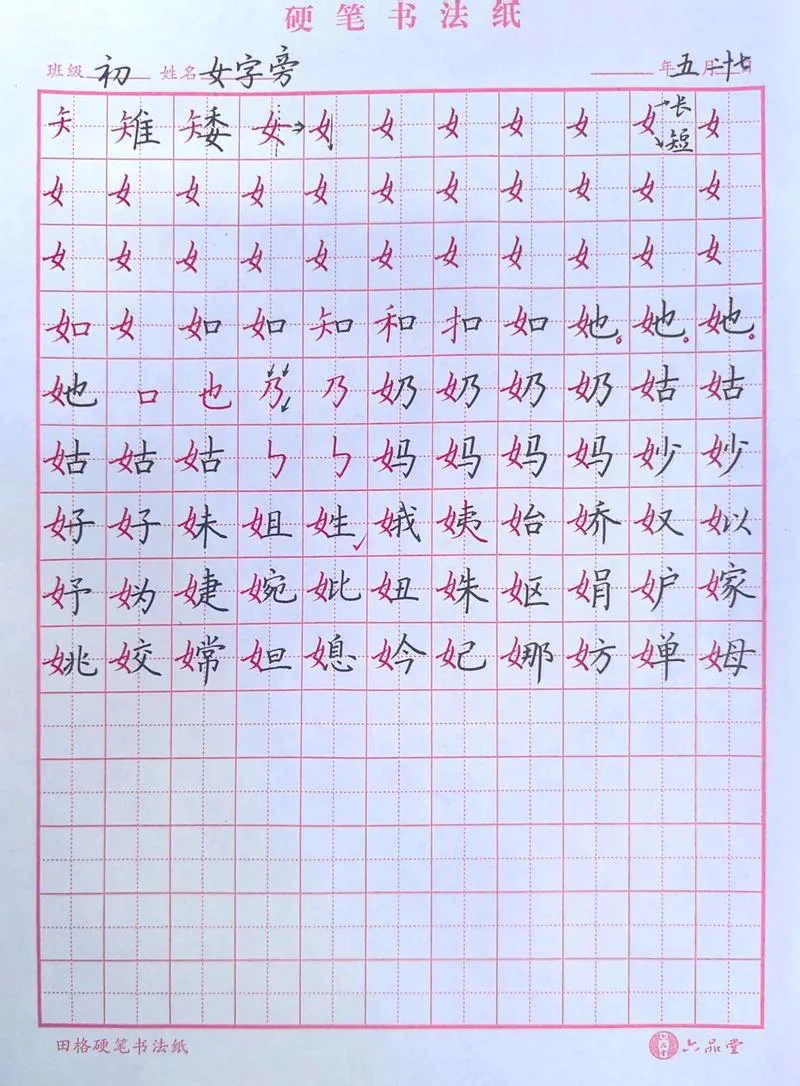 硬笔书法纸
班级 初 姓名 女字旁 年 五 月 十七
矢 雉 矮 女 女 女 女 女 女 女 长 短 女
女 女 女 女 女 女 女 女 女 女 女
女 女 女 女 女 女 女 女 女 女 女
如 女 如 如 知 和 扣 如 她 她 她
她 口 也 乃 乃 奶 奶 奶 奶 姑 姑
姑 姑 姑 ㄣ ㄣ 妈 妈 妈 妈 妙 妙
好 好 妹 姐 姓 娥 姨 始 娇 奴 姒
妤 妫 婕 婉 妣 妞 姝 妪 娟 妒 嫁
姚 姣 嫦 妲 媳 妗 妃 娜 妨 婵 姆
田格硬笔书法纸 六品堂